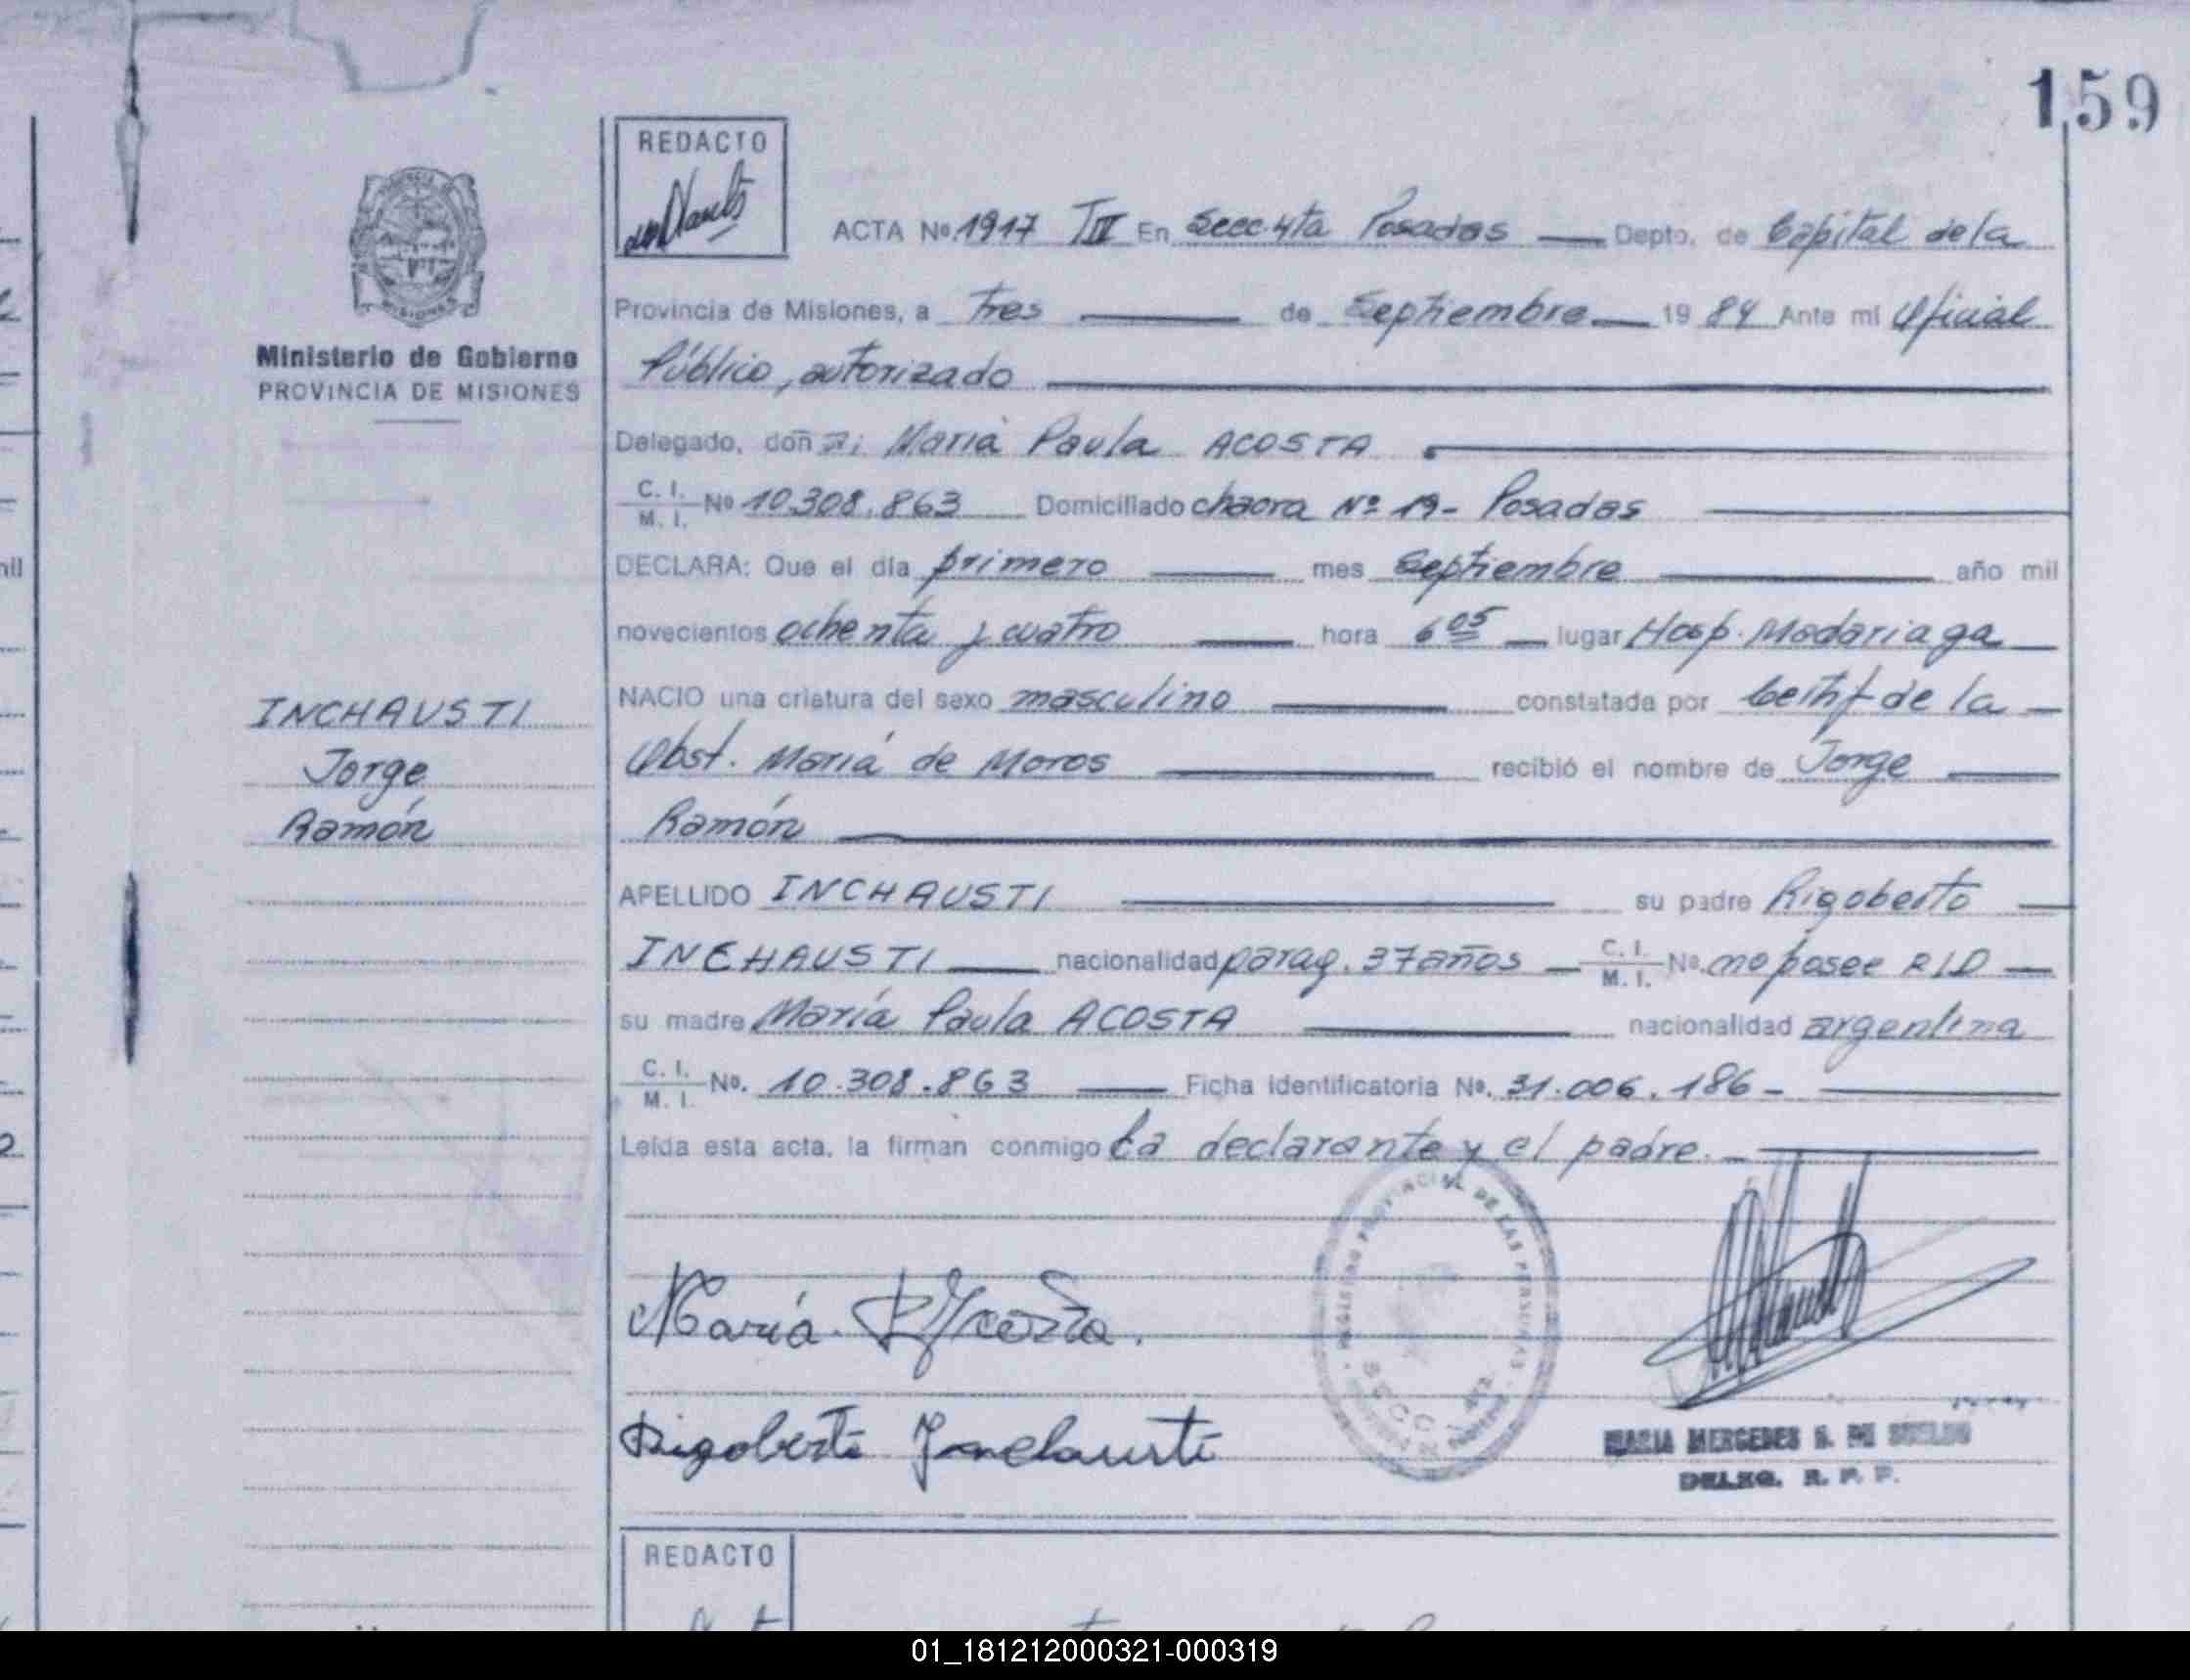 159
REDACTO
ACTA Nº 1917 TIII En Secc. 4ta Posadas Depto. de Capital de la
Provincia de Misiones, a tres de Septiembre 1984 Ante mi Oficial
Público, autorizado
Delegado, doña; María Paula ACOSTA
C. I. M. I. Nº 10.308.863 Domiciliado chacra Nº 19- Posadas
DECLARA: Que el día primero mes Septiembre año mil
novecientos ochenta y cuatro hora 6 05 lugar Hosp. Madariaga
NACIO una criatura del sexo masculino constatada por Certif de la
Obst. María de Moros recibió el nombre de Jorge
Ramón
APELLIDO INCHAUSTI su padre Rigoberto
INCHAUSTI nacionalidad parag. 37 años C. I. M. I. Nº. no posee RID
su madre María Paula ACOSTA nacionalidad argentina
C. I. M. I. Nº. 10.308.863 Ficha identificatoria Nº. 31.006.186-
Leída esta acta, la firman conmigo La declarante y el padre.-
Ministerio de Gobierno
PROVINCIA DE MISIONES
INCHAUSTI
Jorge
Ramón
María P Acosta.
Rigoberto Inchausti
REGISTRO PROVINCIAL DE LAS PERSONAS
MARIA MERCEDES
DELEG. R. P. P.
REDACTO
01_181212000321-000319